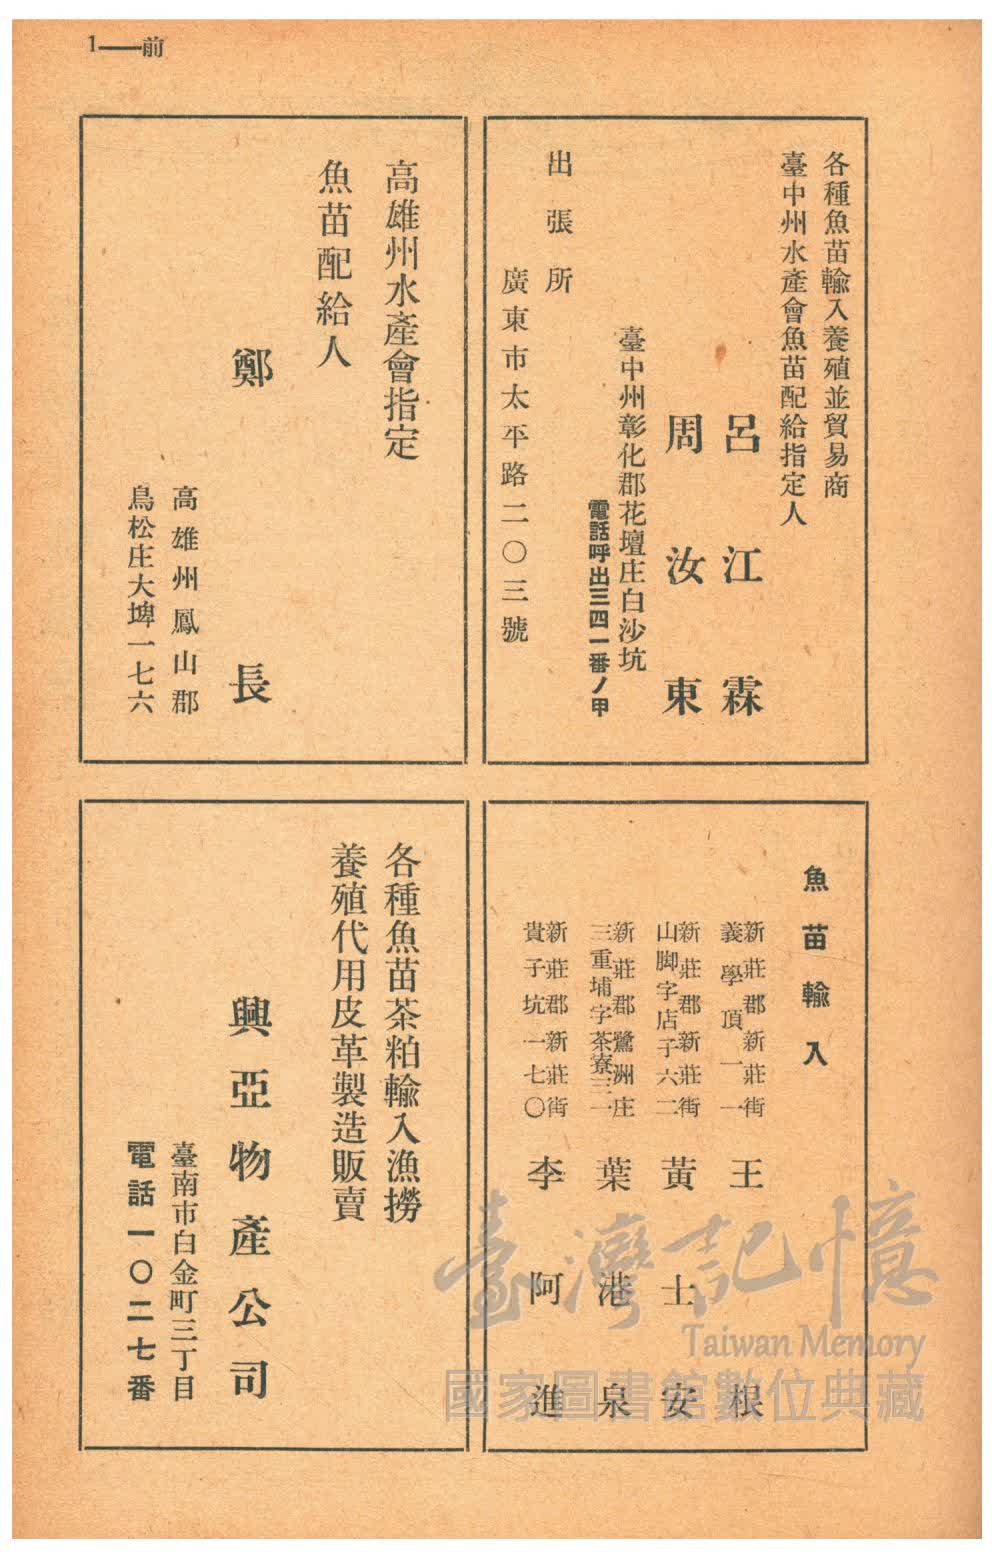 1——前
各種魚苗輸入養殖並貿易商
臺中州水產會魚苗配給指定人
呂江霖
周汝東
臺中州彰化郡花壇庄白沙坑
電話呼出三四一番ノ甲
出張所
廣東市太平路二〇三號
高雄州水產會指定
魚苗配給人
鄭長
高雄州鳳山郡
鳥松庄大埤一七六
魚苗輸入
新莊郡新莊街
義學頂一一
王根
新莊郡新莊街
山脚字店子六二
黃士安
新莊郡鷺洲庄
三重埔字茶寮三一
葉港泉
新莊郡新莊街
貴子坑一七〇
李阿進
各種魚苗茶粕輸入漁撈
養殖代用皮革製造販賣
興亞物產公司
臺南市白金町三丁目
電話一〇二七番
臺灣記憶
Taiwan Memory
國家圖書館數位典藏